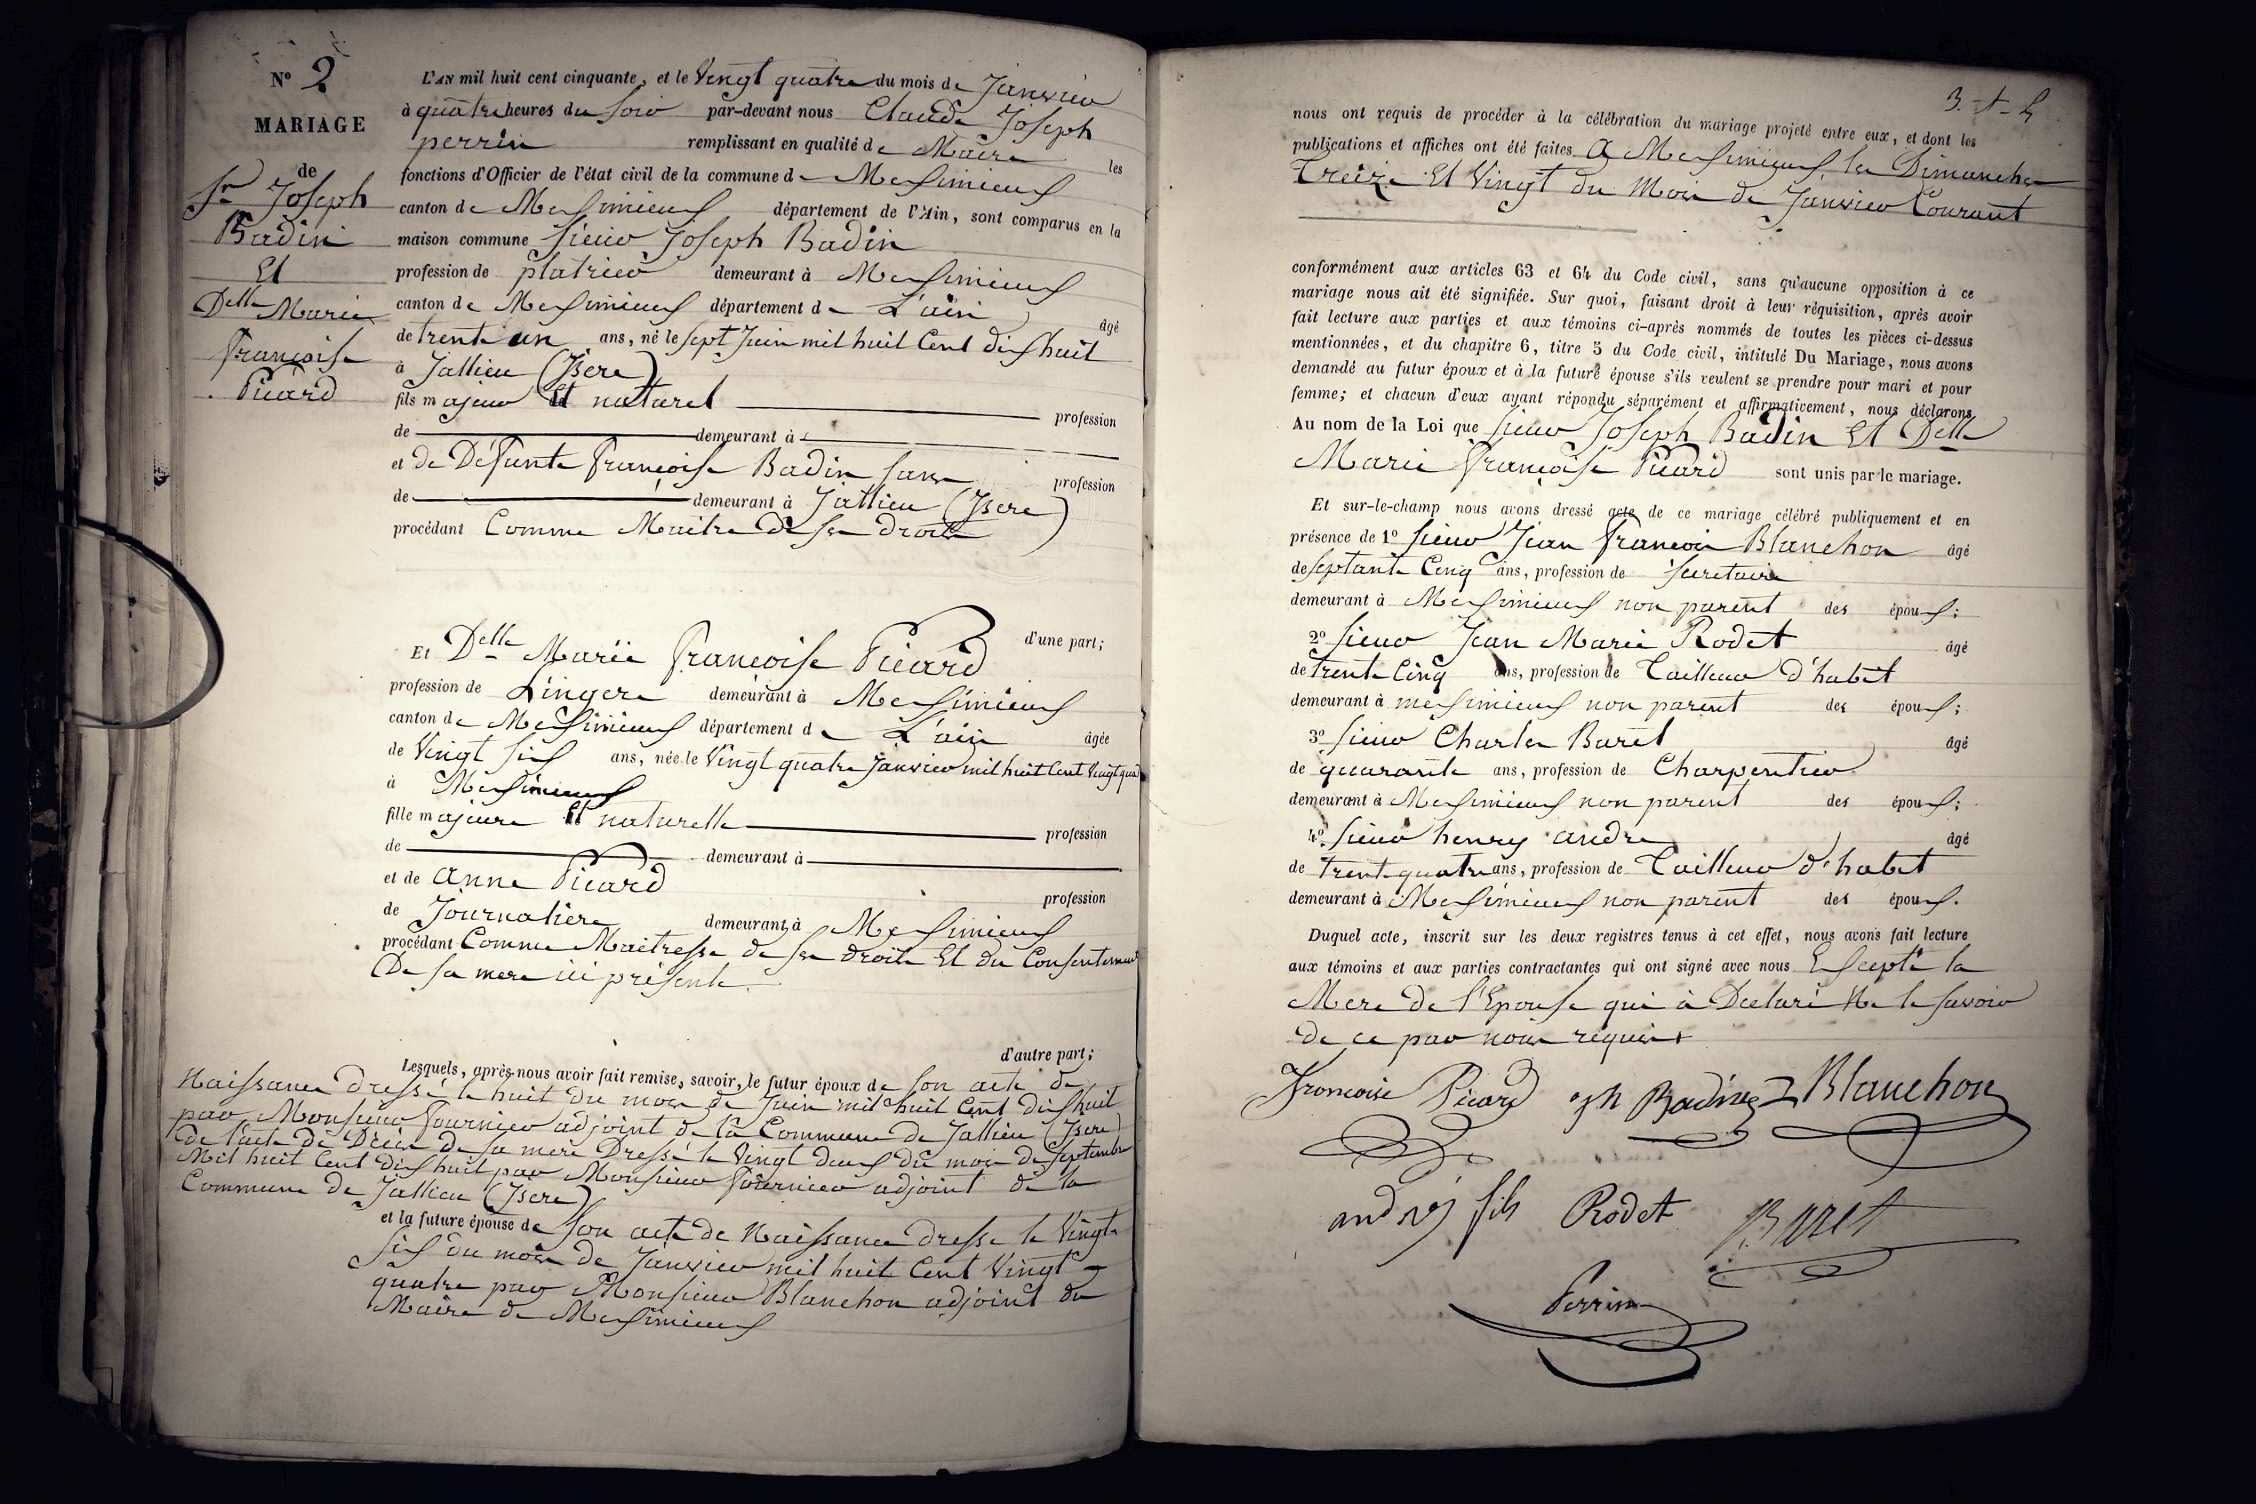 N° 2
MARIAGE
de
Sr Joseph
Badin
Et
Delle Marie
françoise
Picard
L'AN mil huit cent cinquante, et le Vingt quatre du mois de Janvier
à quatre heures du soir par-devant nous Claude Joseph
perrin remplissant en qualité de Maire les
fonctions d'Officier de l'état civil de la commune de Messimieux
canton de Messimieux département de l'Ain, sont comparus en la
maison commune sieur Joseph Badin
profession de platrier demeurant à Messimieux
canton de Messimieux département de L'ain âgé
de trente un ans, né le sept Juin mil huit Cent dix huit
à Jallieu (Isere)
fils majeur Et naturel profession
de demeurant à
et de Défunte françoise Badin sans profession
de demeurant à Jallieu (Isere)
procédant Comme Maitre de ses droits
d'une part;
Et Delle Marie françoise Picard
profession de Lingere demeurant à Messimieux
canton de Messimieux département de L'ain âgée
de Vingt six ans, née le Vingt quatre Janvier mil huit Cent Vingt quatre
à Messimieux
fille majeure Et naturelle profession
de demeurant à
et de anne Picard profession
de Journaliere demeurant à Messimieux
procédant Comme Maitresse de ses droits Et du Consentement
De sa mere ici présente
d'autre part;
Lesquels, après nous avoir fait remise, savoir, le futur époux de son acte de
Naissance dressé le huit du mois de Juin mil huit Cent dix huit
par Monsieur fournier adjoint de la Commune de Jallieu (Isere)
de l'acte de Décès de sa mere Dressé le Vingt deux du mois de septembre
Mil huit Cent dix huit par Monsieur fournier adjoint de la
Commune de Jallieu (Isere)
et la future épouse de son acte de Naissance dressé le Vingt
six du mois de Janvier mil huit Cent Vingt
quatre par Monsieur Blanchon adjoint du
Maire de Messimieux
nous ont requis de procéder à la célébration du mariage projeté entre eux, et dont les
publications et affiches ont été faites A Messimieux les Dimanches
Treize Et Vingt du Mois de Janvier Courant
conformément aux articles 63 et 64 du Code civil, sans qu'aucune opposition à ce
mariage nous ait été signifiée. Sur quoi, faisant droit à leur réquisition, après avoir
fait lecture aux parties et aux témoins ci-après nommés de toutes les pièces ci-dessus
mentionnées, et du chapitre 6, titre 5 du Code civil, intitulé Du Mariage, nous avons
demandé au futur époux et à la future épouse s'ils veulent se prendre pour mari et pour
femme; et chacun d'eux ayant répondu séparément et affirmativement, nous déclarons
Au nom de la Loi que sieur Joseph Badin Et Delle
Marie françoise Picard sont unis par le mariage.
Et sur-le-champ nous avons dressé acte de ce mariage célébré publiquement et en
présence de 1° sieur Jean francois Blanchon âgé
de septante Cinq ans, profession de secretaire
demeurant à Messimieux non parent des époux;
2° sieur Jean Marie Rodet âgé
de trente Cinq ans, profession de Tailleur d'habit
demeurant à messimieux non parent des époux;
3° sieur Charles Buret âgé
de quarante ans, profession de Charpentier
demeurant à Messimieux non parent des époux;
4° sieur henry andré âgé
de trente quatre ans, profession de Tailleur d'habit
demeurant à Messimieux non parent des époux.
Duquel acte, inscrit sur les deux registres tenus à cet effet, nous avons fait lecture
aux témoins et aux parties contractantes qui ont signé avec nous Excepté la
Mere de l'Epouse qui à Declaré Ne le savoir
de ce par nous requis
Francoise Picard Badin Blanchon
andré fils Rodet Buret
Perrin